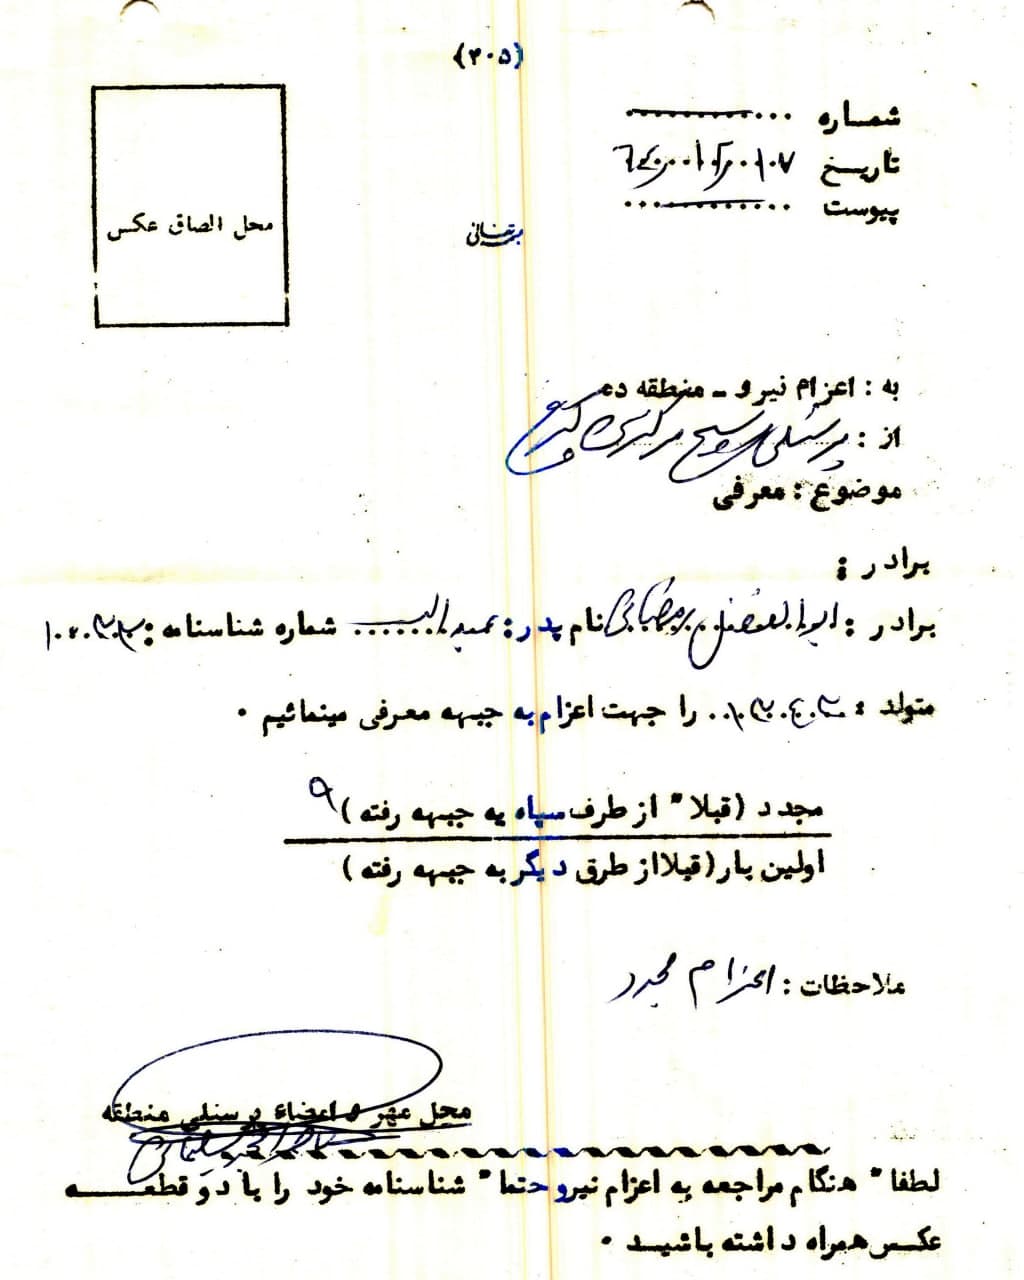 (۲۰۵)
شماره
تاریخ
پیوست
محل الصاق عکس
به : اعزام نیرو - منطقه ده
از : پرسنلی بسیج مرکزی کرج
موضوع : معرفی
برادر :
برادر : ابوالفضل رمضانی نام پدر : شماره شناسنامه :
متولد : را جهت اعزام به جبهه معرفی مینمائیم .
مجدد (قبلا" از طرف سپاه به جبهه رفته )
اولین بار (قبلا از طرق دیگر به جبهه رفته )
ملاحظات : اعزام مجدد
محل مهر و امضاء پرسنلی منطقه
لطفا" هنگام مراجعه به اعزام نیرو حتما" شناسنامه خود را با دو قطعه
عکس همراه داشته باشید .